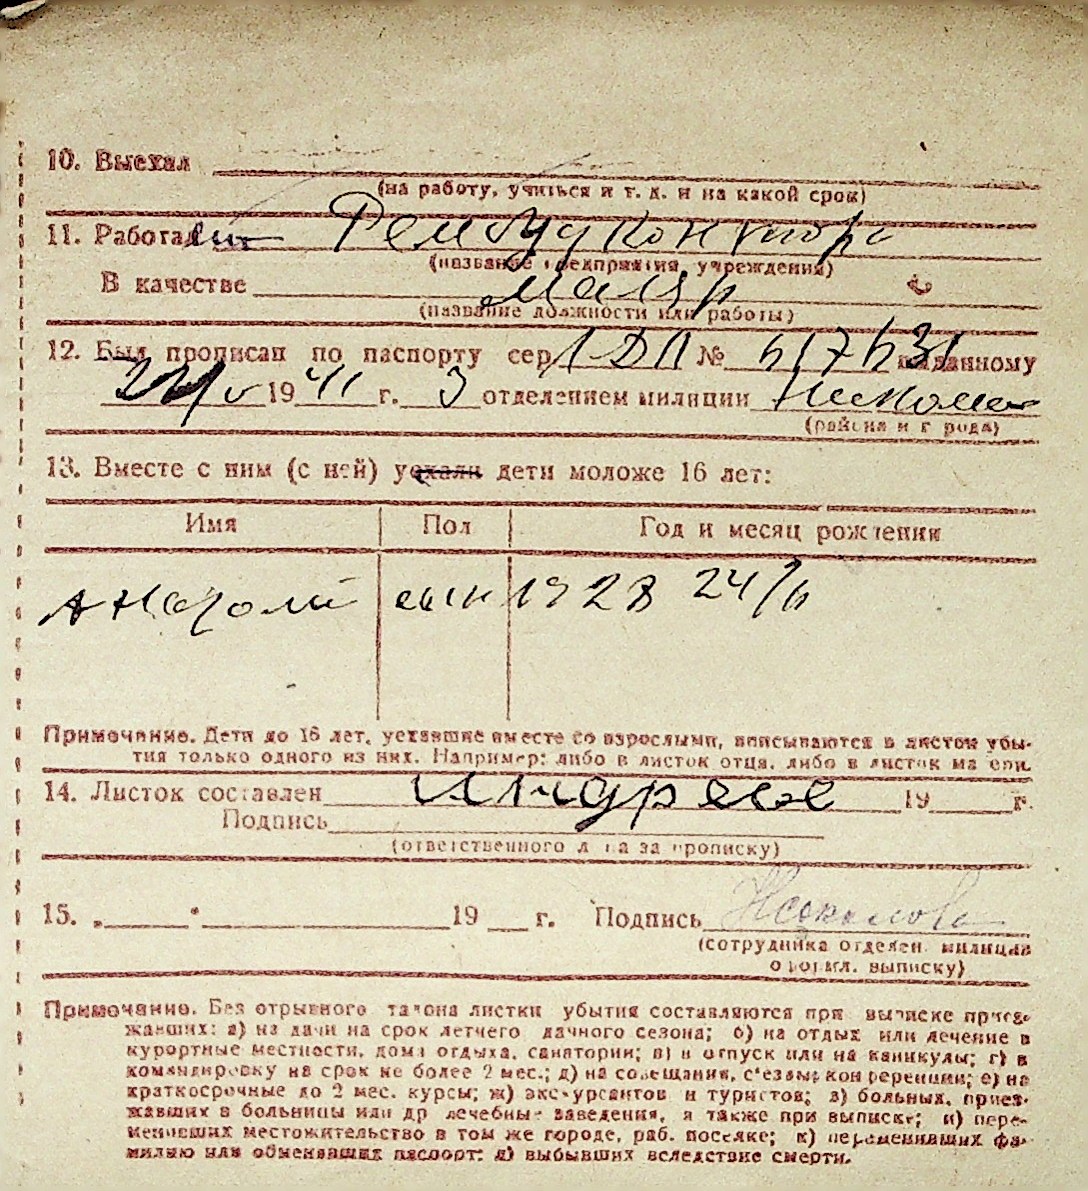 10. Выехал
(на работу, учиться и т. д. и на какой срок)
11. Работал Ремстудконтора
(название предприятия, учреждения)
В качестве маляр
(название должности или работы)
12. Был прописан по паспорту сер. № 617631 выданному
19 41 г. 3 отделением милиции
(района и города)
13. Вместе с ним (с ней) уехали дети моложе 16 лет:
Имя Пол Год и месяц рождения
Анатолий сын 1928 24/6
Примечание. Дети до 16 лет, уехавшие вместе со взрослыми, вписываются в листок убы-
тия только одного из них. Например: либо в листок отца, либо в листок матери.
14. Листок составлен 19 г.
Подпись
(ответственного лица за прописку)
15. „ " 19 г. Подпись
(сотрудника отделен. милиции
оформл. выписку)
Примечание. Без отрывного талона листки убытия составляются при выписке приез-
жавших: а) на дачи на срок летнего дачного сезона; б) на отдых или лечение в
курортные местности, дома отдыха, санатории; в) в отпуск или на каникулы; г) в
командировку на срок не более 2 мес.; д) на совещания, съезды, конференции; е) на
краткосрочные до 2 мес. курсы; ж) экскурсантов и туристов; з) больных, приез-
жавших в больницы или др лечебные заведения, а также при выписке; и) пере-
менивших местожительство в том же городе, раб. поселке; к) переменивших фа-
милию или обменявших паспорт; л) выбывших вследствие смерти.